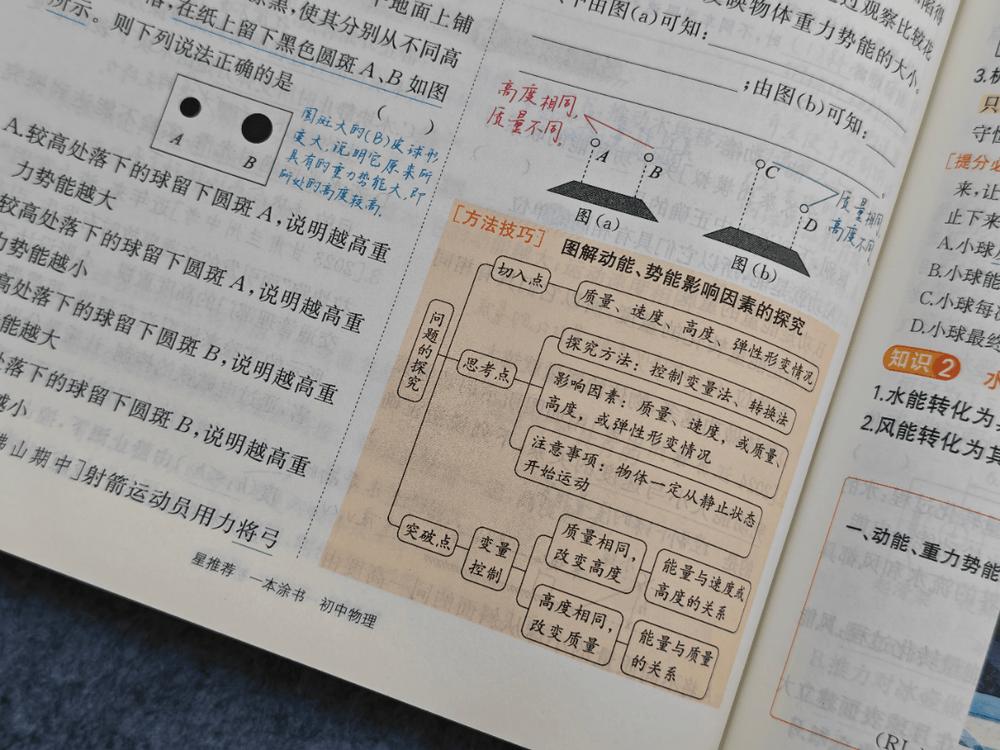 地面上铺
使其分别从不同高
在纸上留下黑色圆斑A、B如图
所示。则下列说法正确的是
( )
A
B
圆斑大的(B)皮球形
变大,说明它原来所
具有的重力势能大,即
所处的高度较高.
A.较高处落下的球留下圆斑A,说明越高重
力势能越大
较高处落下的球留下圆斑A,说明越高重
力势能越小
高处落下的球留下圆斑B,说明越高重
能越大
处落下的球留下圆斑B,说明越高重
越小
山期中]射箭运动员用力将弓
星推荐 一本涂书 初中物理
过观察比较
映物体重力势能的大小。
由图(a)可知:
;由图(b)可知:
高度相同,
质量不同.
A
B
C
D
质量相同,
高度不同
图(a)
图(b)
[方法技巧]
图解动能、势能影响因素的探究
问题的探究
切入点
质量、速度、高度、弹性形变情况
思考点
探究方法:控制变量法、转换法
影响因素:质量、速度,或质量、
高度,或弹性形变情况
注意事项:物体一定从静止状态
开始运动
突破点
变量
控制
质量相同,
改变高度
能量与速度或
高度的关系
高度相同,
改变质量
能量与质量
的关系
3.
只
守恒
[提分必
来,让
止下来
A.小球
B.小球能
C.小球每
D.小球最终
知识2
水
1.水能转化为
2.风能转化为其
一、动能、重力势能
(RJ